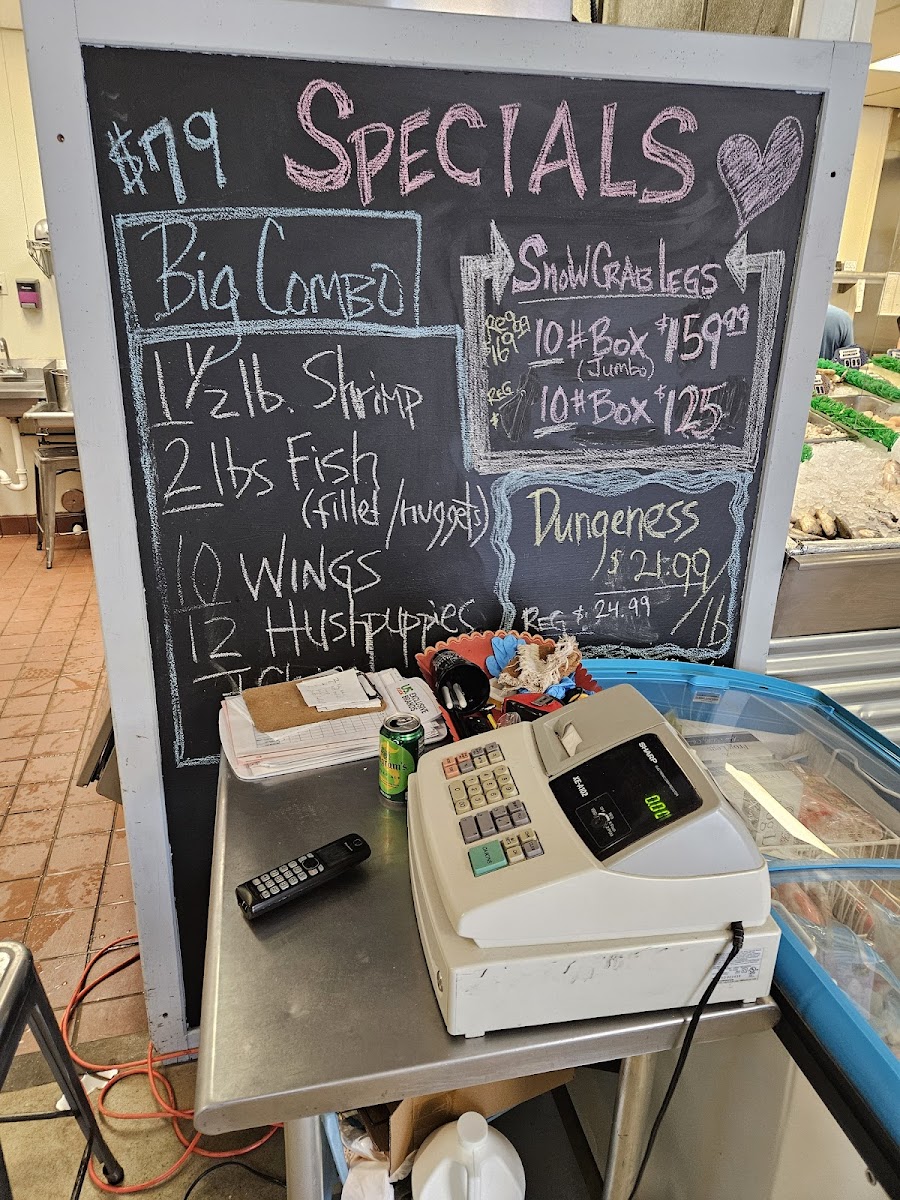 $79
SPECIALS
Big COMBO
1 1/2 lb. Shrimp
2 lbs Fish
(fillet/nuggets)
10 WINGS
12 Hushpuppies
SNOW CRAB LEGS
10# BOX $159.99
(Jumbo)
REG
10# BOX $125
Dungeness
$21.99/lb
REG $24.99
SHARP
XE-A102
0.00